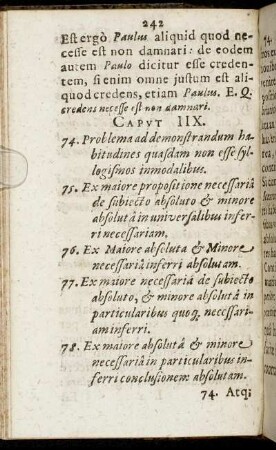 242
Est ergò Paulus aliquid quod ne-
cesse est non damnari: de eodem
autem Paulo dicitur esse creden-
tem, si enim omne justum est ali-
quod credens, etiam Paulus. E. Q.
credens necesse est non damnari.
CAPVT IIX.
74. Problema ad demonstrandum ha-
bitudines quasdam non esse syl-
logismos inmodalibus.
75. Ex maiore propositione necessariâ
de subiecto absoluto & minore
absolutâ in universalibus infer-
ri necessariam.
76. Ex Maiore absoluta & Minore
necessariâ inferri absolutam.
77. Ex maiore necessariâ de subiecto
absoluto, & minore absolutâ in
particularibus quoq; necessari-
am inferri.
78. Ex maiore absolutâ & minore
necessariâ in particularibus in-
ferri conclusionem absolutam.
74. Atq;